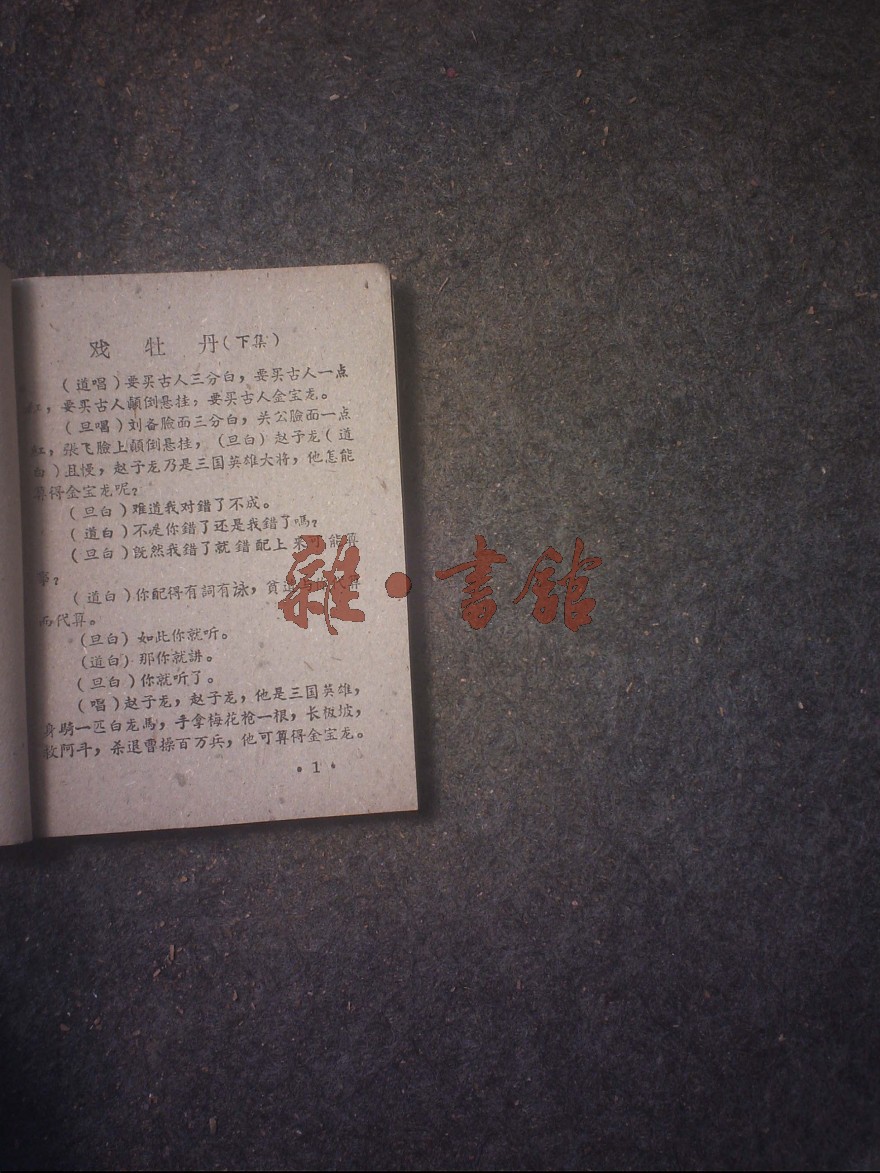 戏 牡 丹(下集)
(道唱)要买古人三分白，要买古人一点
红，要买古人顛倒悬挂，要买古人金宝龙。
(旦唱)刘备臉面三分白，关公臉面一点
紅，張飞臉上顛倒悬挂，(旦白)赵子龙(道
白)且慢，赵子龙乃是三国英雄大将，他怎能
算得金宝龙呢？
(旦白)难道我对錯了不成。
(道白)不是你錯了还是我錯了嗎？
(旦白)既然我錯了就錯配上来可能算
(道白)你配得有詞有詠，貧道
而代算。
(旦白)如此你就听。
(道白)那你就讲。
(旦白)你就听了。
(唱)赵子龙，赵子龙，他是三国英雄，
身騎一匹白龙馬，手拿梅花枪一根，长板坡，
救阿斗，杀退曹操百万兵，他可算得金宝龙。
·1·
雜·書館